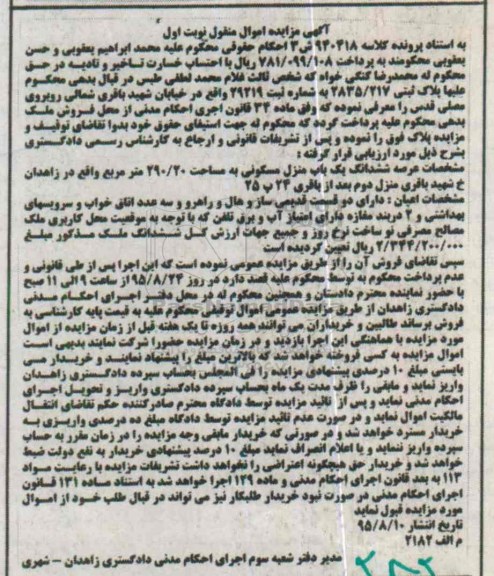 آگهی مزایده اموال منقول نوبت اول
به استناد پرونده کلاسه ۹۴۰۳۱۸ ش۳ احکام حقوقی محکوم علیه محمد ابراهیم یعقوبی و حسن
یعقوبی محکومند به پرداخت ۷۸۱/۰۹۹/۱۰۸ ریال با احتساب خسارت تاخیر و تادیه در حق
محکوم له محمدرضا گنگی خواه که شخص ثالث غلام محمد لطفی طبس در قبال بدهی محکوم
علیها پلاک ثبتی ۲۸۳۵/۲۱۷ به شماره ثبت ۲۹۲۱۹ واقع در خیابان شهید باقری شمالی روبروی
مصلی قدس را معرفی نموده که وفق ماده ۳۴ قانون اجری احکام مدنی از محل فروش ملک
بدهی محکوم علیه پرداخت گردد که محکوم له جهت استیفای حقوق خود بدوا تقاضای توقیف و
مزایده پلاک فوق را نموده و پس از تشریفات قانونی و ارجاع به کارشناس رسمی دادگستری
بشرح ذیل مورد ارزیابی قرار گرفته :
مشخصات عرصه ششدانگ یک باب منزل مسکونی به مساحت ۲۹۰/۲۰ متر مربع واقع در زاهدان
خ شهید باقری منزل دوم بعد از باقری ۲۴ پ ۲۵
مشخصات اعیان : دارای دو قسمت قدیمی ساز و هال و راهرو و سه عدد اتاق خواب و سرویسهای
بهداشتی و ۲ دربند مغازه دارای امتیاز آب و برق تلفن که با توجه به موقعیت محل کاربری ملک
مصالح مصرفی نو ساخت نرخ روز و جمیع جهات ارزش کل ششدانگ ملک مذکور مبلغ
۲/۳۴۴/۲۰۰/۰۰۰ ریال تعین گردیده است
سپس تقاضای فروش آن را از طریق مزایده عمومی نموده است که این اجرا پس از طی قانونی و
عدم پرداخت محکوم به توسط محکوم علیه قصد دارد در روز ۹۵/۸/۲۴ از ساعت ۹ الی ۱۱ صبح
با حضور نماینده محترم دادستان و همچنین محکوم له در محل دفتر اجرای احکام مدنی
دادگستری زاهدان از طریق مزایده عمومی اموال توقیفی محکوم علیه به قیمت پایه کارشناسی به
فروش برساند طالبین و خریداران می توانند همه روزه تا یک هفته قبل از زمان مزایده از اموال
مورد مزایده با هماهنگی این اجرا بازدید و در زمان مزایده حضورا شرکت نمایند بدیهی است
اموال مزایده به کسی فروخته خواهد شد که بالاترین مبلغ را پیشنهاد نمایند و خریدار می
بایستی مبلغ ۱۰ درصدی پیشنهادی مزایده را فی المجلس بحساب سپرده دادگستری زاهدان
واریز نماید و مابقی را ظرف مدت یک ماه بحساب سپرده دادگستری واریز و تحویل اجرای
احکام مدنی نماید و پس از تائید مزایده توسط دادگاه محترم صادرکننده حکم تقاضای انتقال
مالکیت اموال نماید و در صورت عدم تائید مزایده توسط دادگاه مبلغ ده درصدی واریزی به
خریدار مسترد خواهد شد و در صورتی که خریدار مابقی وجه مزایده را در زمان مقرر به حساب
سپرده واریز ننماید و یا اعلام انصراف نماید مبلغ ۱۰ درصد پیشنهادی خریدار به نفع دولت ضبط
خواهد شد و خریدار حق هیچگونه اعتراضی را نخواهد داشت تشریفات مزایده با رعایت مواد
۱۱۳ به بعد قانون اجرای احکام مدنی و ماده ۱۲۹ اجرا خواهد شد به استناد ماده ۱۳۱ قانون
اجرای احکام مدنی در صورت نبود خریدار طلبکار نیز می تواند در قبال طلب خود از اموال
مورد مزایده قبول نماید
تاریخ انتشار ۹۵/۸/۱۰
م الف ۲۱۸۲
مدیر دفتر شعبه سوم اجرای احکام مدنی دادگستری زاهدان – شهری